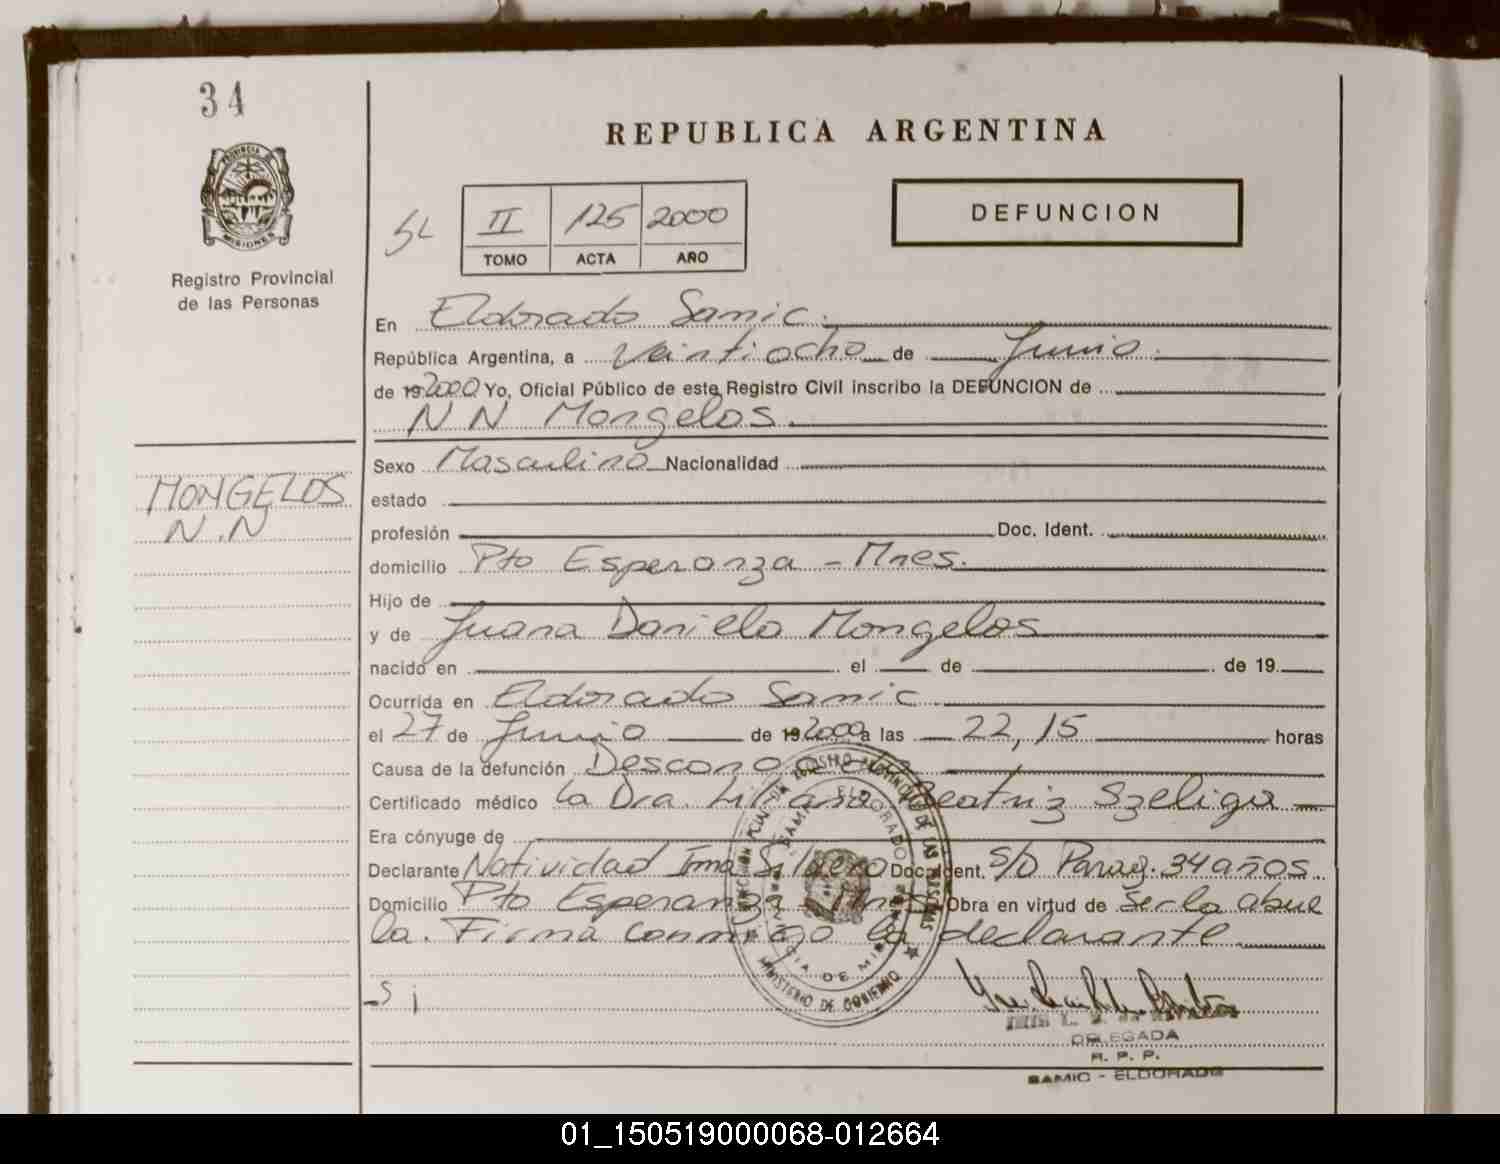 34
REPUBLICA ARGENTINA
PROVINCIA
MISIONES
Registro Provincial
de las Personas
SL
II 125 2000
TOMO ACTA AÑO
DEFUNCION
En Eldorado Samic.
República Argentina, a Veintiocho de Junio.
de 19 2000 Yo, Oficial Público de este Registro Civil inscribo la DEFUNCION de
N N Mongelos.
Sexo Masculino Nacionalidad
MONGELOS
N.N
estado
profesión Doc. Ident.
domicilio Pto Esperanza - Mnes.
Hijo de
y de Juana Daniela Mongelos
nacido en el de de 19
Ocurrida en Eldorado Samic
el 27 de Junio de 19 2000 a las 22,15 horas
Causa de la defunción Desconocida
Certificado médico la Dra. Liliana Beatriz Szeliga
Era cónyuge de
Declarante Natividad Irma Doc. Ident. S/D Parag. 34 años
Domicilio Pto Esperanza - Mnes Obra en virtud de Ser la abue
la. Firma conmigo la declarante
MINISTERIO DE GOBIERNO
DELEGADA
R. P. P.
SAMIC - ELDORADO
01_150519000068-012664